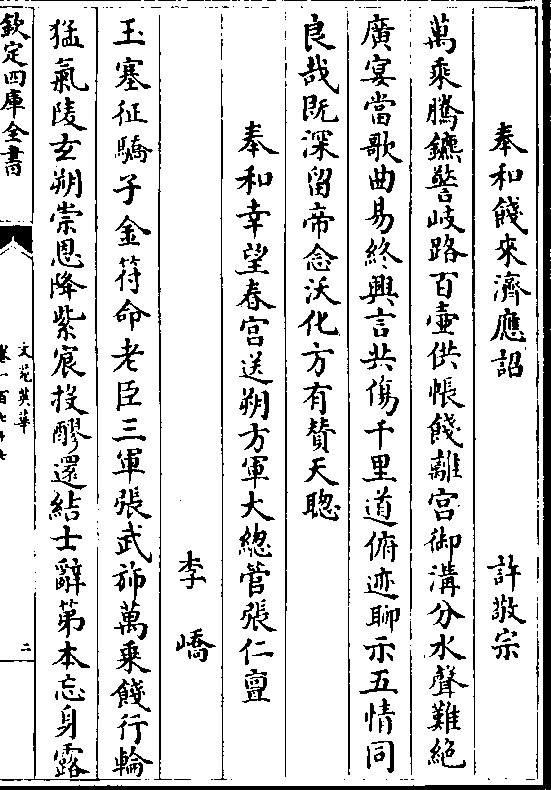 奉和餞來濟應詔　許敬宗
萬乘騰鑣警岐路百壷供帳餞離宮御溝分水聲難絶
廣宴當歌曲易終興言共傷千里道俯迹聊示五情同
良哉既深留帝念沃化方有賛天聰
奉和幸望春宮送朔方軍大總管張仁亶
李嶠
玉塞征驕子金符命老臣三軍張武斾萬乘餞行輪
猛氣陵玄朔崇恩降紫宸投醪還結士辭第本忘身露
欽定四庫全書
文苑英華
卷一百七十七
二